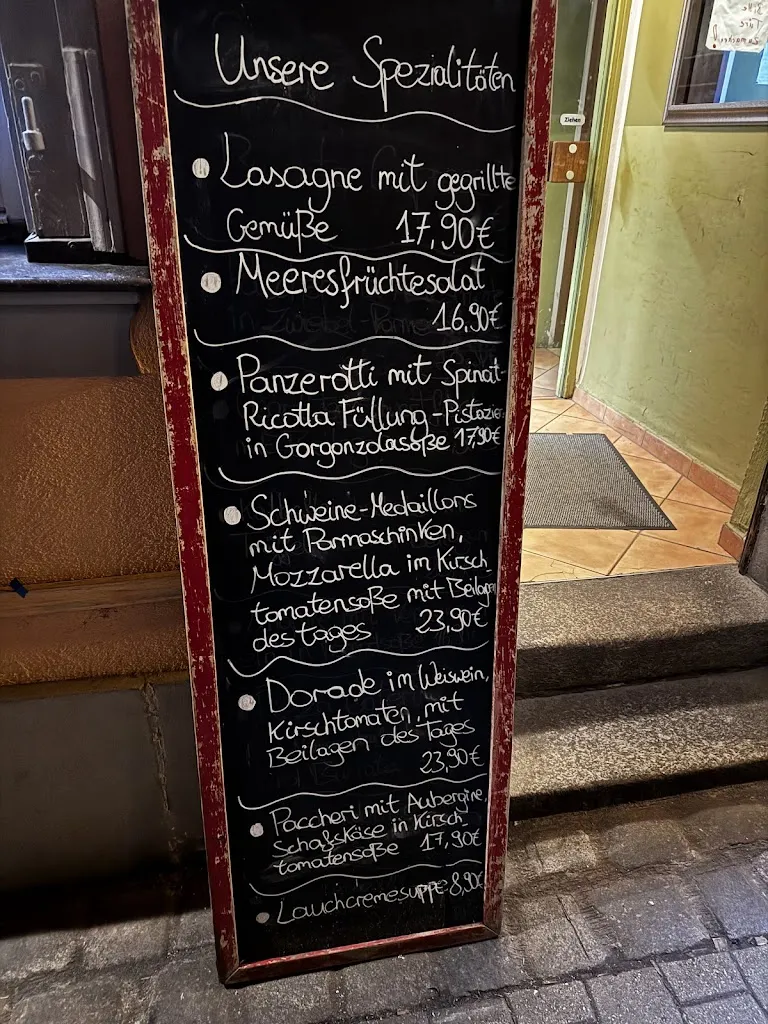 Unsere Spezialitäten
Lasagne mit gegrillte
Gemüße 17,90€
Meeresfrüchtesalat
16,90€
Panzerotti mit Spinat-
Ricotta Füllung-Pistazie
in Gorgonzolasoße 17,90€
Schweine-Medaillons
mit Parmaschinken,
Mozzarella im Kirsch
tomatensoße mit Beilagen
des tages 23,90€
Dorade im Weiswein,
Kirschtomaten, mit
Beilagen des Tages
23,90€
Paccheri mit Aubergine,
Schafskäse in Kirsch
tomatensoße 17,90€
Lauchcremesuppe 8,90€
Ziehen
Bitte
Türe
zumachen!